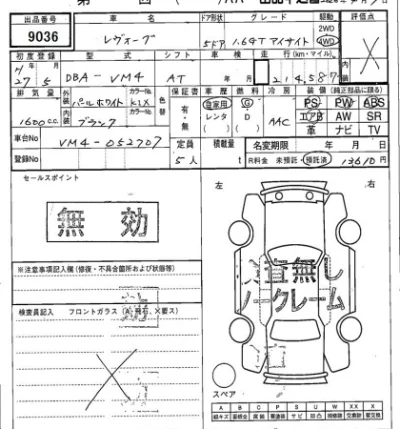 出品番号 車名 ドア形状 グレード 駆動 評価点
9036 レヴォーグ 5ドア 1.6GT アイサイト 2WD 4WD
初度登録 型式 シフト 車検 走行(km・マイル) 内装
27年5月 DBA-VM4 AT 年 月 214,587
排気量 外装 カラーNo 色替 保証書 車歴 燃料 冷房 装備(純正部品に限る)
1600cc パールホワイト K1X 有・無 自家用 レンタ G D AAC PS PW ABS
内装 ブラック カラーNo エアB AW SR
革 ナビ TV
車台No VM4-052707 定員 積載量 名変期限 年 月 日
登録No 5人 t R料金 未預託・預託済 13610円
セールスポイント 左 右
無効
※注意事項記入欄(修復・不具合箇所および状態等)
検査員記入 フロントガラス(A・飛石、×要ス)
査無し
ノークレーム
スペア
A B C P S U W X XX